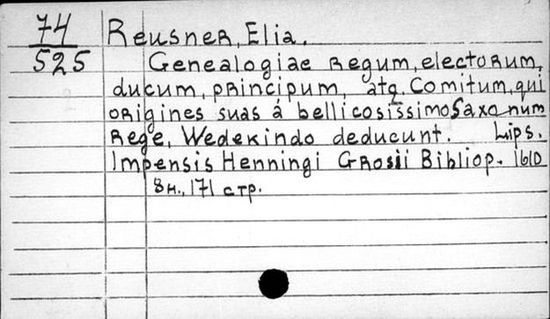 74 Reusner, Elia.
525 Genealogiae Regum, electorum,
ducum, principum, atq Comitum, qui
origines suas á bellicosissimo Saxonum
Rege, Wedekindo deducunt. Lips.
Impensis Henningi Grosii Bibliop. 1610
8н., 171 стр.